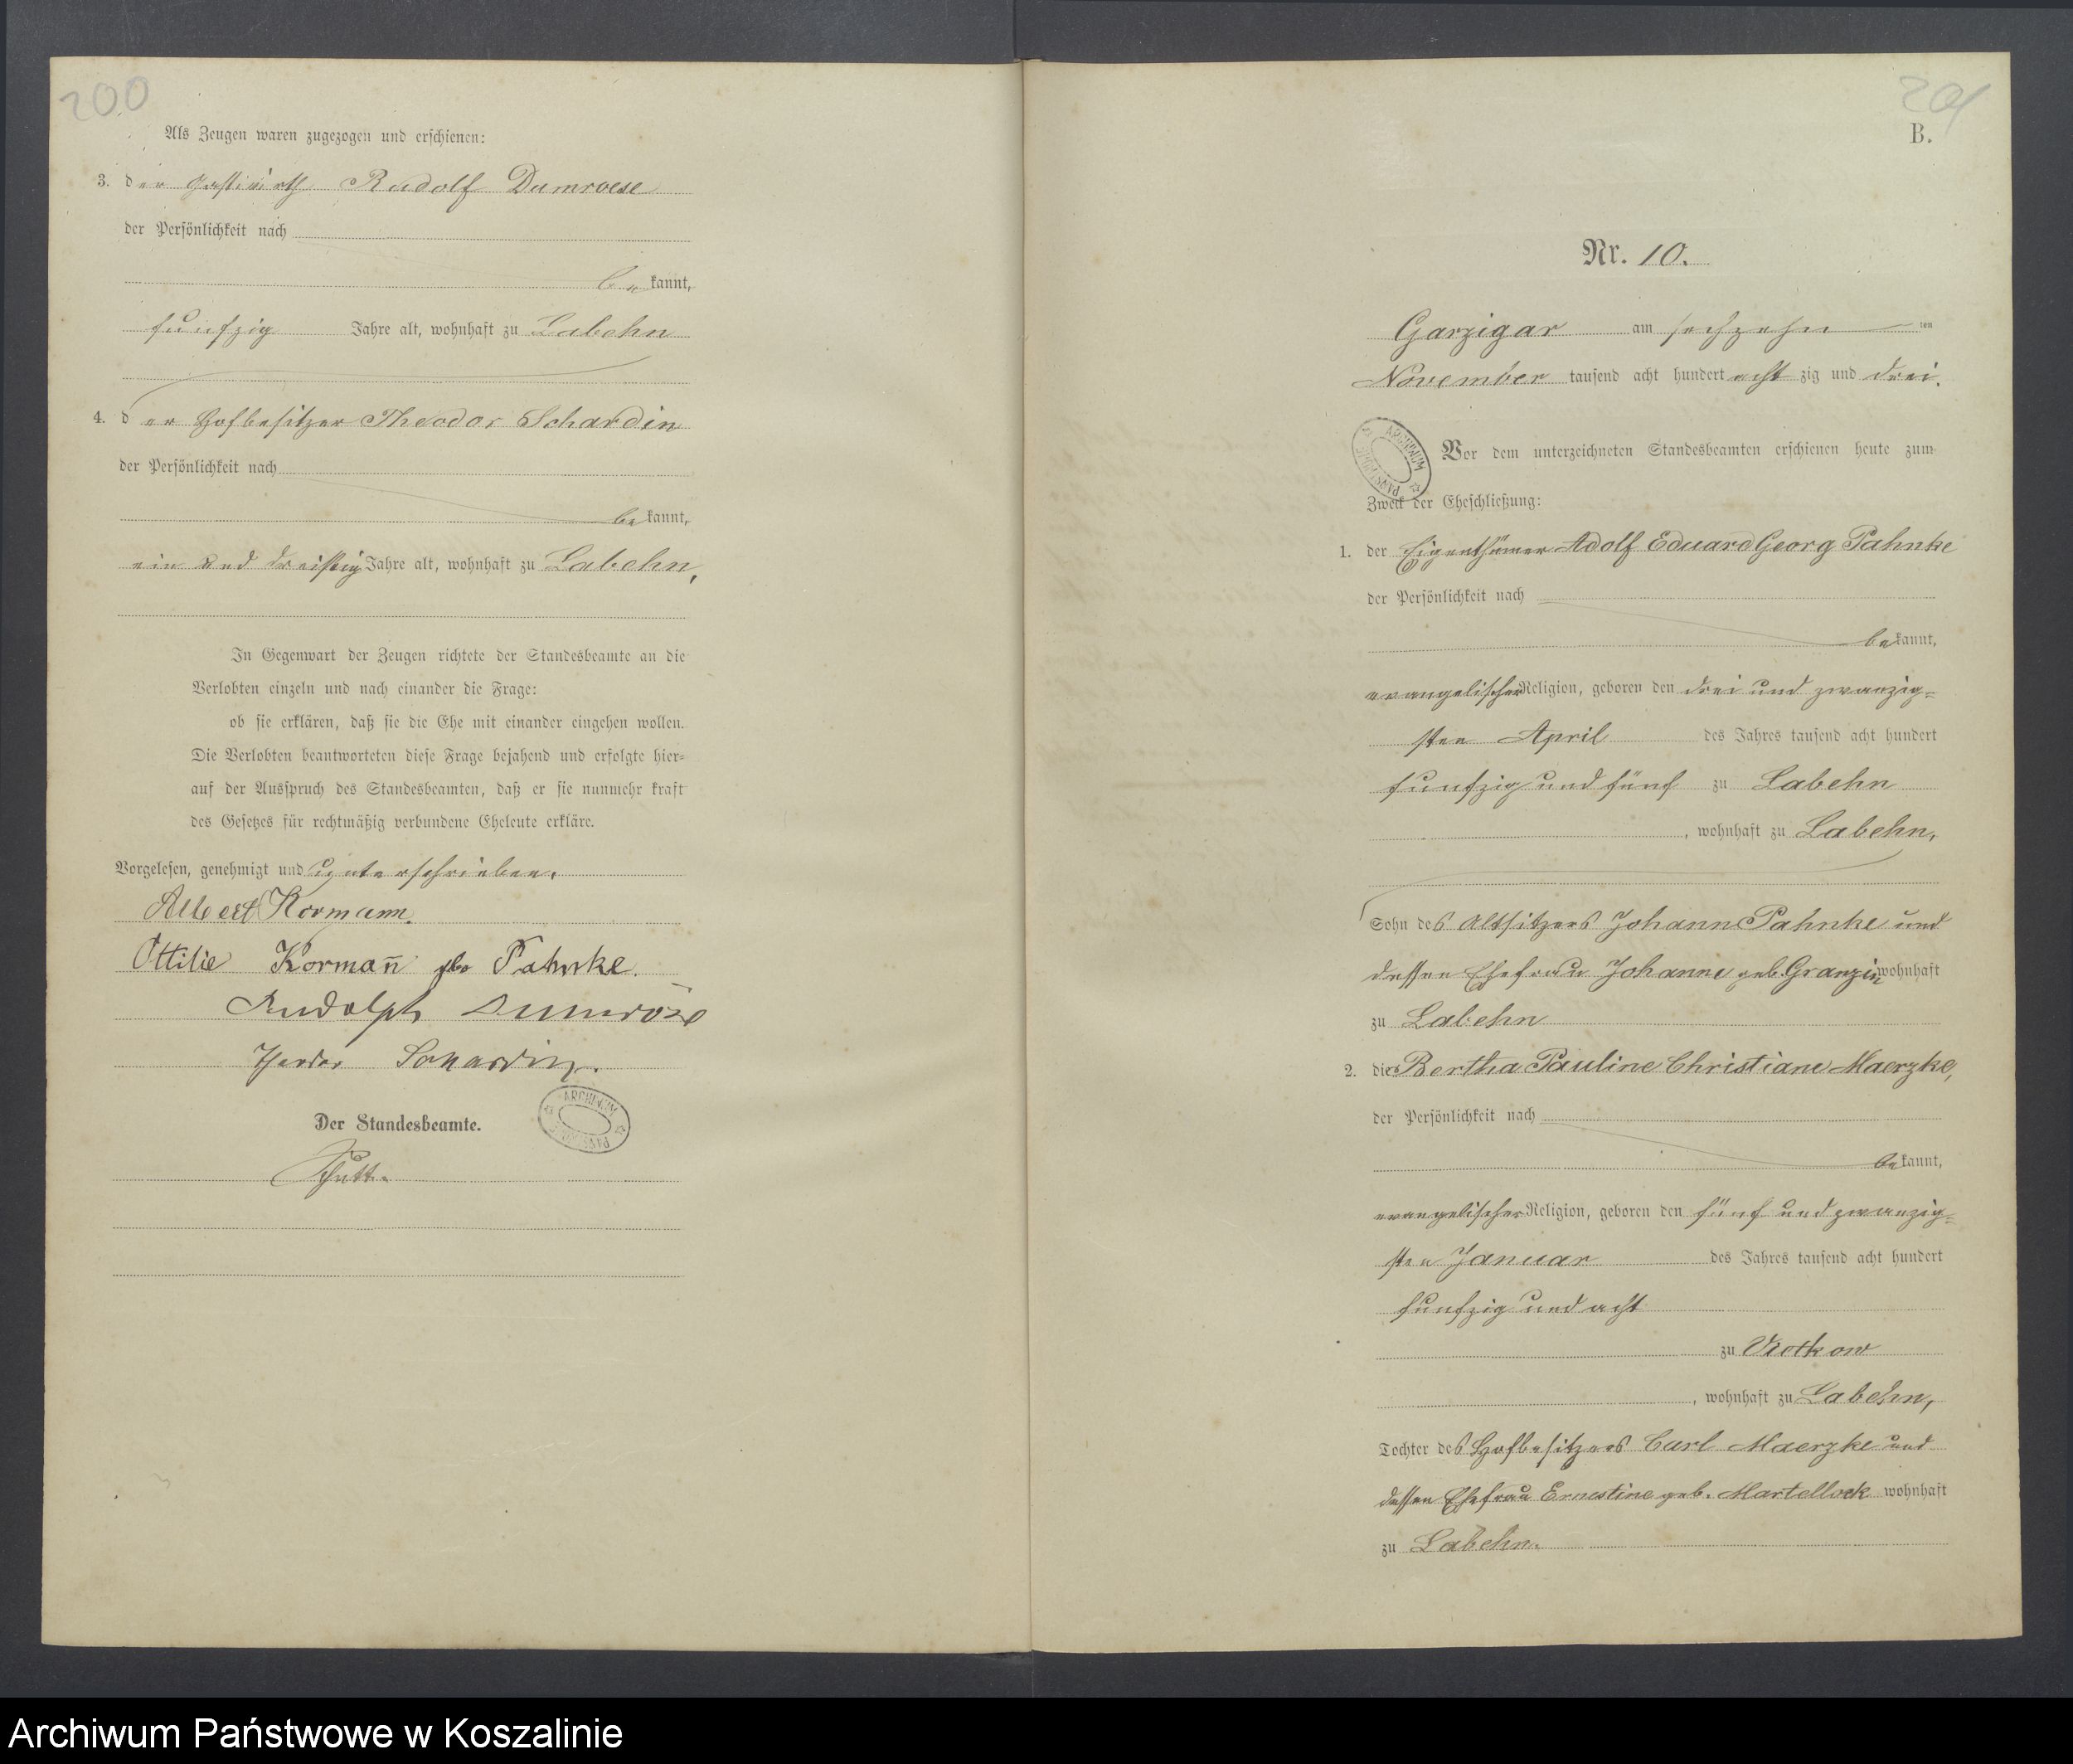 200
Als Zeugen waren zugezogen und erschienen:
3. der Gastwirth Rudolf Dumroese
der Persönlichkeit nach
be kannt,
funfzig Jahre alt, wohnhaft zu Labehn
4. der Hofbesitzer Theodor Schardin
der Persönlichkeit nach
be kannt,
ein und dreißig Jahre alt, wohnhaft zu Labehn,
In Gegenwart der Zeugen richtete der Standesbeamte an die
Verlobten einzeln und nach einander die Frage:
ob sie erklären, daß sie die Ehe mit einander eingehen wollen.
Die Verlobten beantworteten diese Frage bejahend und erfolgte hier-
auf der Ausspruch des Standesbeamten, daß er sie nunmehr kraft
des Gesetzes für rechtmäßig verbundene Eheleute erkläre.
Vorgelesen, genehmigt und unterschrieben.
Albert Kormann.
Ottilie Korman̄ geb Pahnke.
Rudolph Dumröse
Theodor Schardin.
Der Standesbeamte.
ARCHIWUM PAŃSTWOWE
201
B.
Nr. 10.
Garzigar am sechzehn ten
November tausend acht hundert acht zig und drei.
ARCHIWUM PAŃSTWOWE
Vor dem unterzeichneten Standesbeamten erschienen heute zum
Zweck der Eheschließung:
1. der Eigenthümer Adolf Eduard Georg Pahnke
der Persönlichkeit nach
be kannt,
evangelischer Religion, geboren den drei und zwanzig=
sten April des Jahres tausend acht hundert
funfzig und fünf zu Labehn
, wohnhaft zu Labehn,
Sohn des Altsitzers Johann Pahnke und
dessen Ehefrau Johanne geb. Granzin wohnhaft
zu Labehn
2. die Bertha Pauline Christiane Maerzke,
der Persönlichkeit nach
be kannt,
evangelischer Religion, geboren den fünf und zwanzig=
sten Januar des Jahres tausend acht hundert
funfzig und acht
zu Vrotkow
, wohnhaft zu Labehn,
Tochter des Hofbesitzers Carl Maerzke und
dessen Ehefrau Ernestine geb. Martellock wohnhaft
zu Labehn.
Archiwum Państwowe w Koszalinie